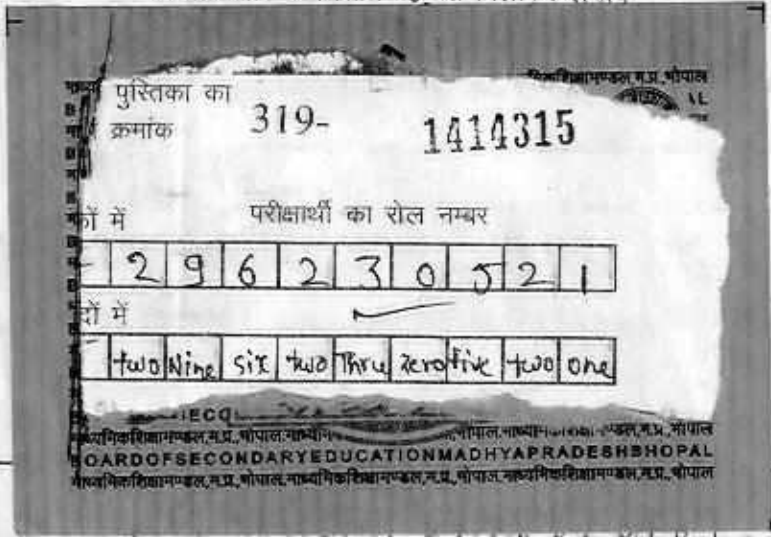 पुस्तिका का
क्रमांक 319- 1414315
कों में परीक्षार्थी का रोल नम्बर
- 2 9 6 2 3 0 5 2 1
दों में
- two Nine six two Thru zero five two one
माध्यमिकशिक्षामण्डल,म.प्र.,भोपाल
BOARDOFSECONDARYEDUCATIONMADHYAPRADESHBHOPAL
माध्यमिकशिक्षामण्डल,म.प्र.,भोपाल.माध्यमिकशिक्षामण्डल,म.प्र.,भोपाल.माध्यमिकशिक्षामण्डल,म.प्र.,भोपाल